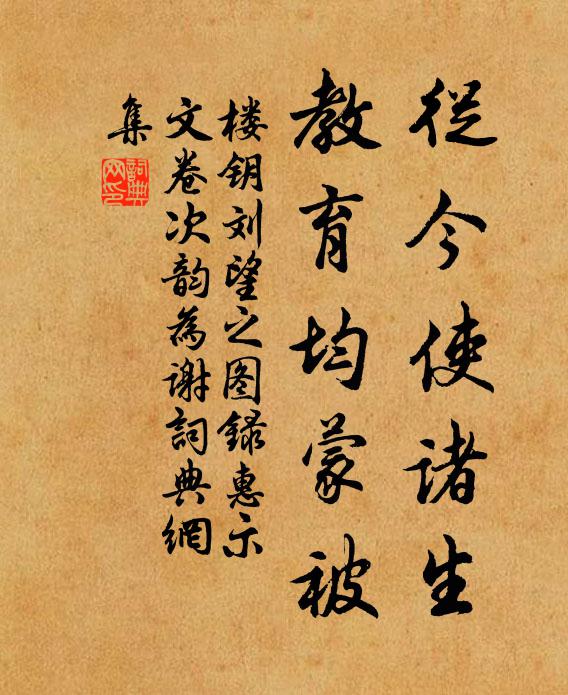 從今使诸生
教育均蒙被
楼钥刘望之图録惠示
文卷次韵為谢詞典網
集
詞典网印